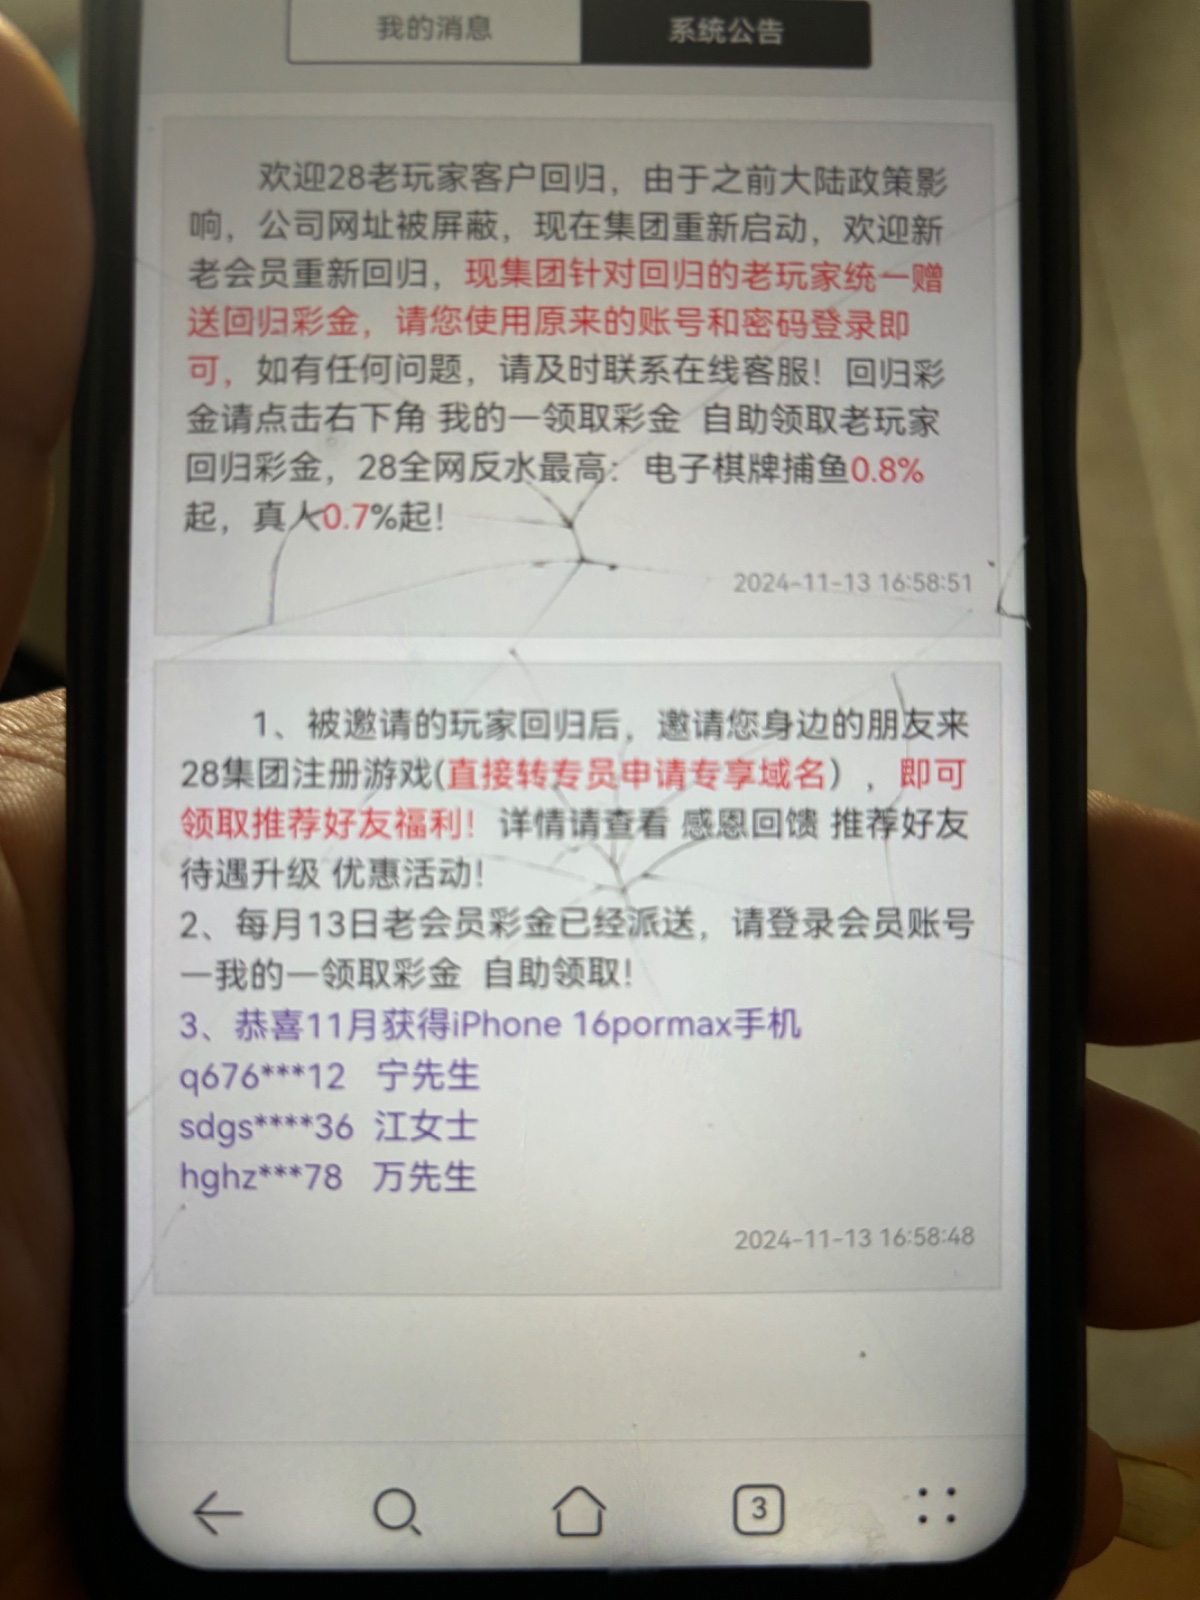 我的消息 系统公告
欢迎28老玩家客户回归，由于之前大陆政策影
响，公司网址被屏蔽，现在集团重新启动，欢迎新
老会员重新回归，现集团针对回归的老玩家统一赠
送回归彩金，请您使用原来的账号和密码登录即
可，如有任何问题，请及时联系在线客服！回归彩
金请点击右下角 我的一领取彩金 自助领取老玩家
回归彩金，28全网反水最高：电子棋牌捕鱼0.8%
起，真人0.7%起！
2024-11-13 16:58:51
1、被邀请的玩家回归后，邀请您身边的朋友来
28集团注册游戏(直接转专员申请专享域名），即可
领取推荐好友福利！详情请查看 感恩回馈 推荐好友
待遇升级 优惠活动！
2、每月13日老会员彩金已经派送，请登录会员账号
一我的一领取彩金 自助领取！
3、恭喜11月获得iPhone 16pormax手机
q676***12 宁先生
sdgs****36 江女士
hghz***78 万先生
2024-11-13 16:58:48
3